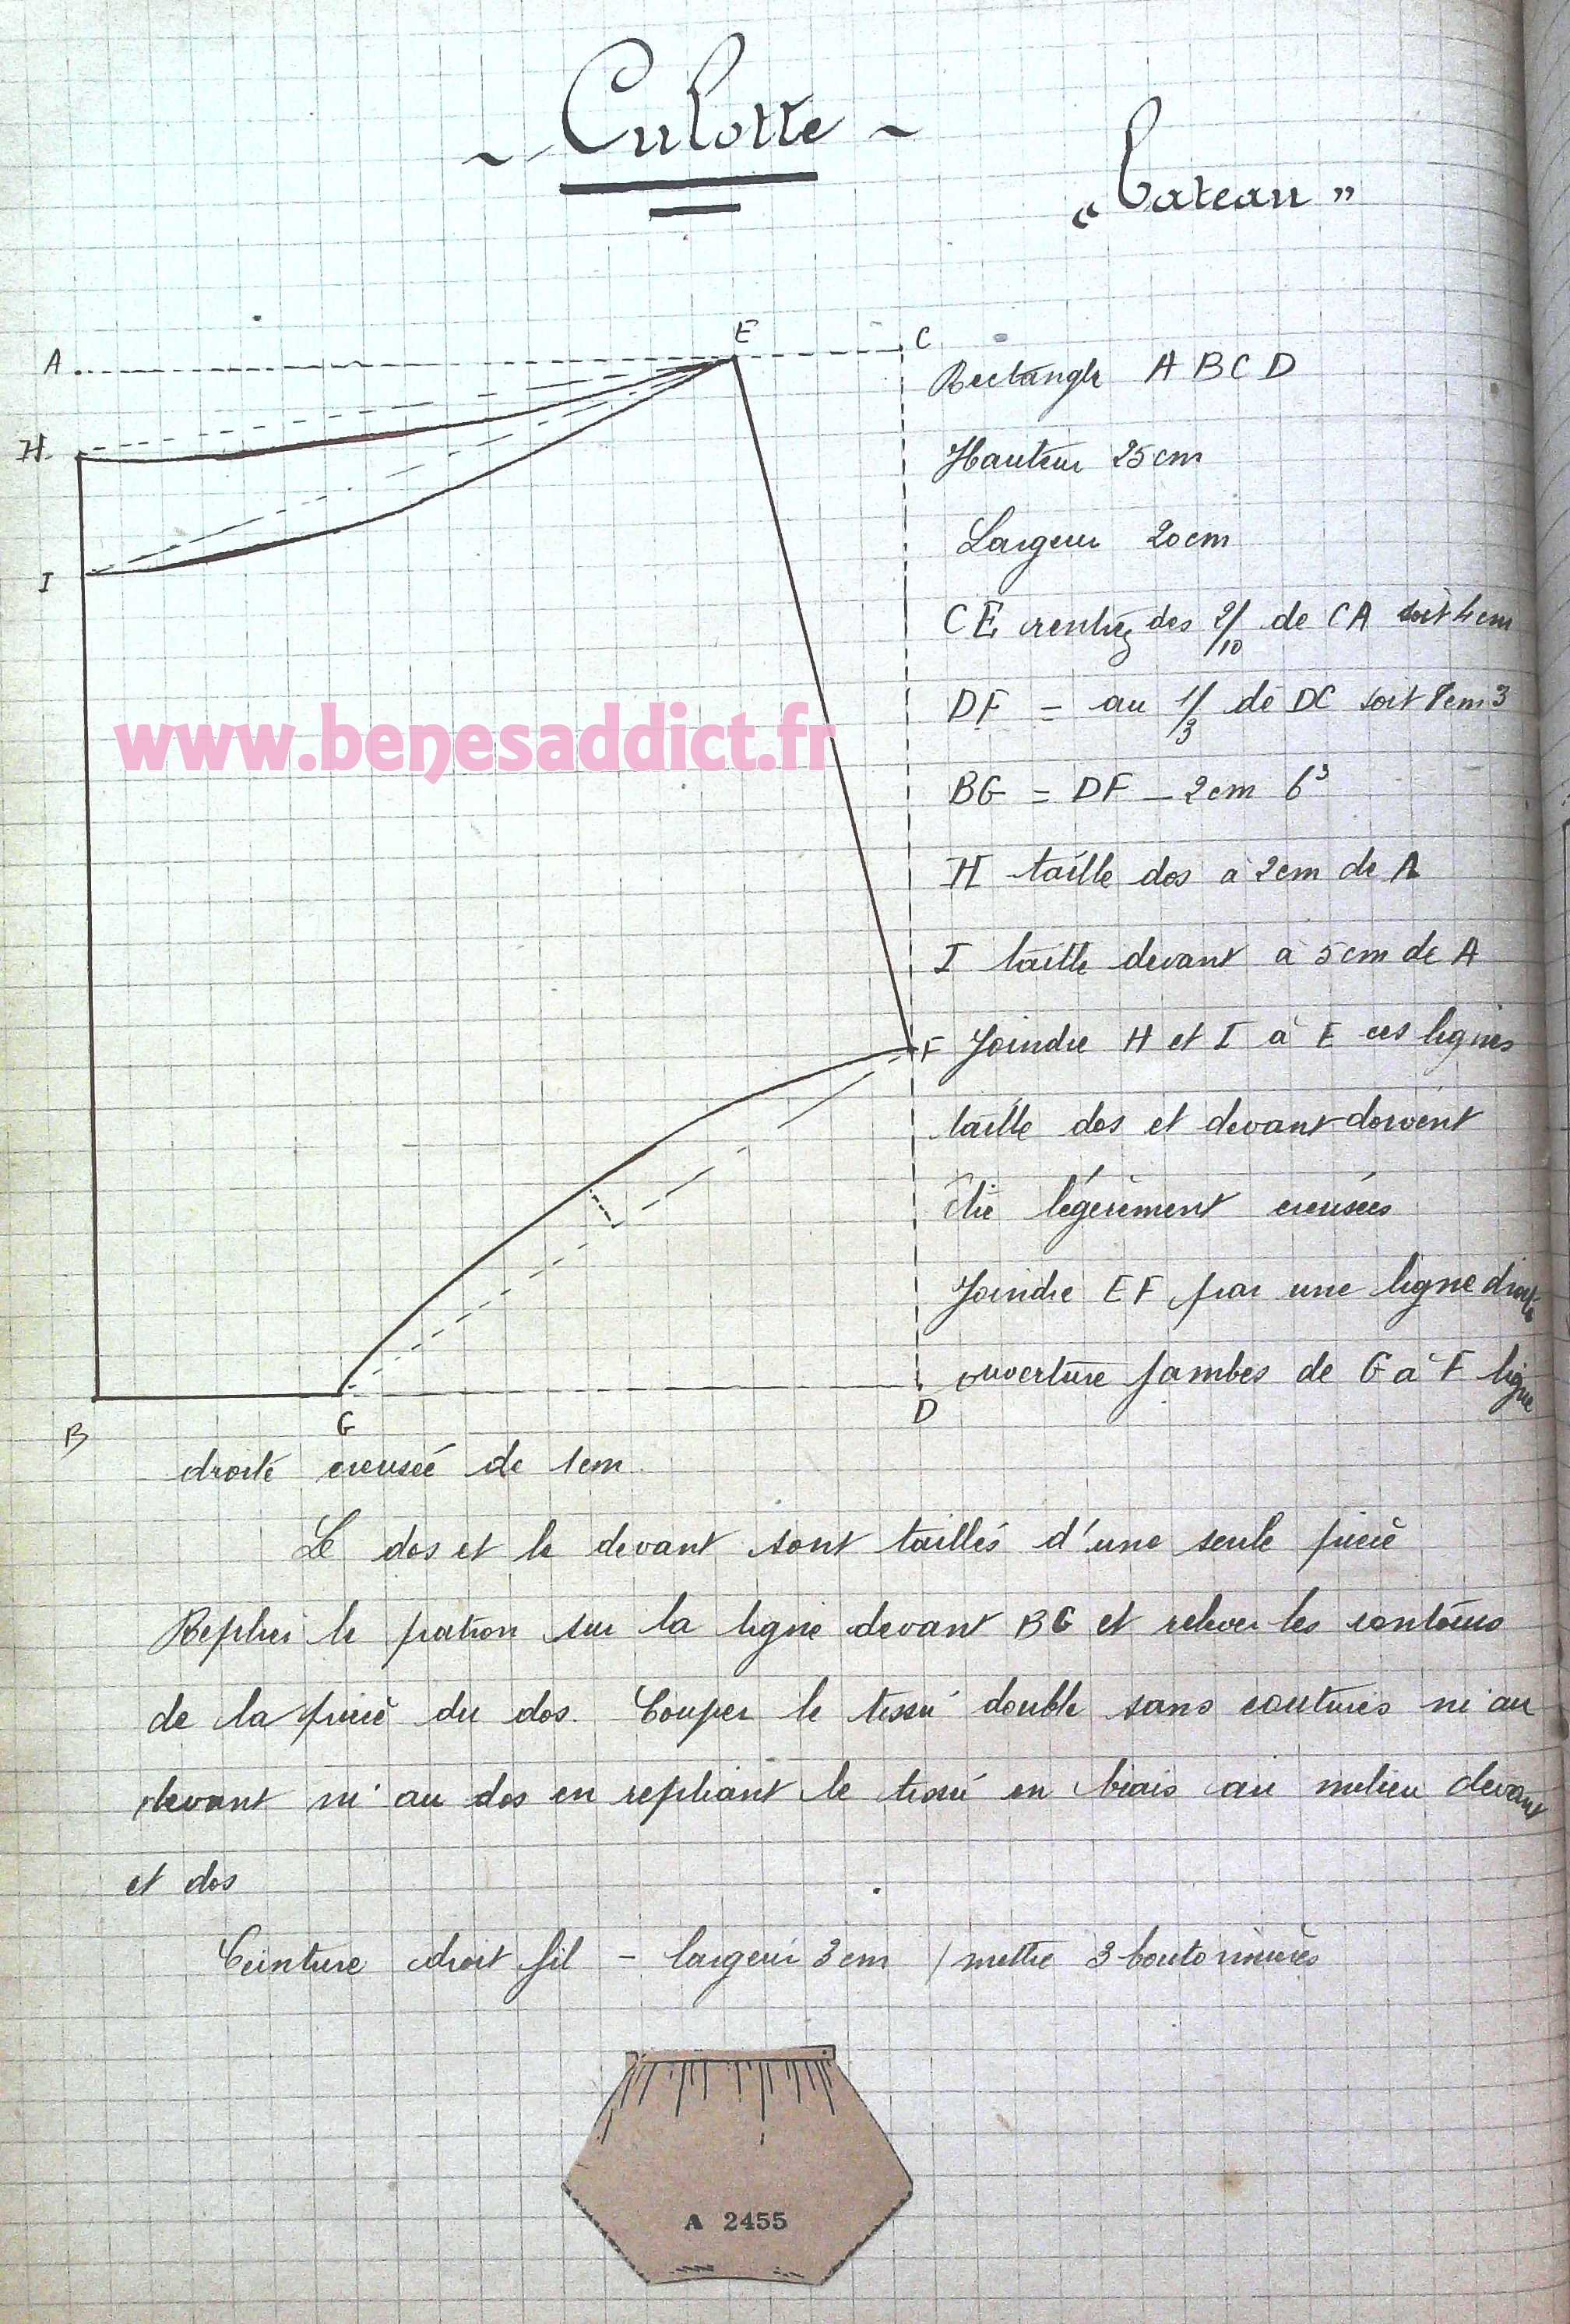 ~ Culotte ~
"bateau"
A
E
C
H
I
Rectangle A B C D
Hauteur 25 cm
Largeur 20 cm
CE rentrez des 2/10 de CA soit 4 cm
DF = au 1/3 de DC soit 8 cm 3
www.benesaddict.fr
BG = DF - 2 cm 6³
H taille dos à 2 cm de A
I taille devant à 5 cm de A
F
Joindre H et I à E ces lignes
taille dos et devant doivent
être légèrement creusées
Joindre EF par une ligne droite
ouverture jambes de G à F ligne
B
G
D
droite creusée de 1 cm
Le dos et le devant sont taillés d'une seule pièce
Replier le patron sur la ligne devant BG et relever les contours
de la pièce du dos. Couper le tissu double sans coutures ni au
devant ni au dos en repliant le tissu en biais au milieu devant
et dos
Ceinture droit fil - largeur 3 cm / mettre 3 boutonnières
A 2455